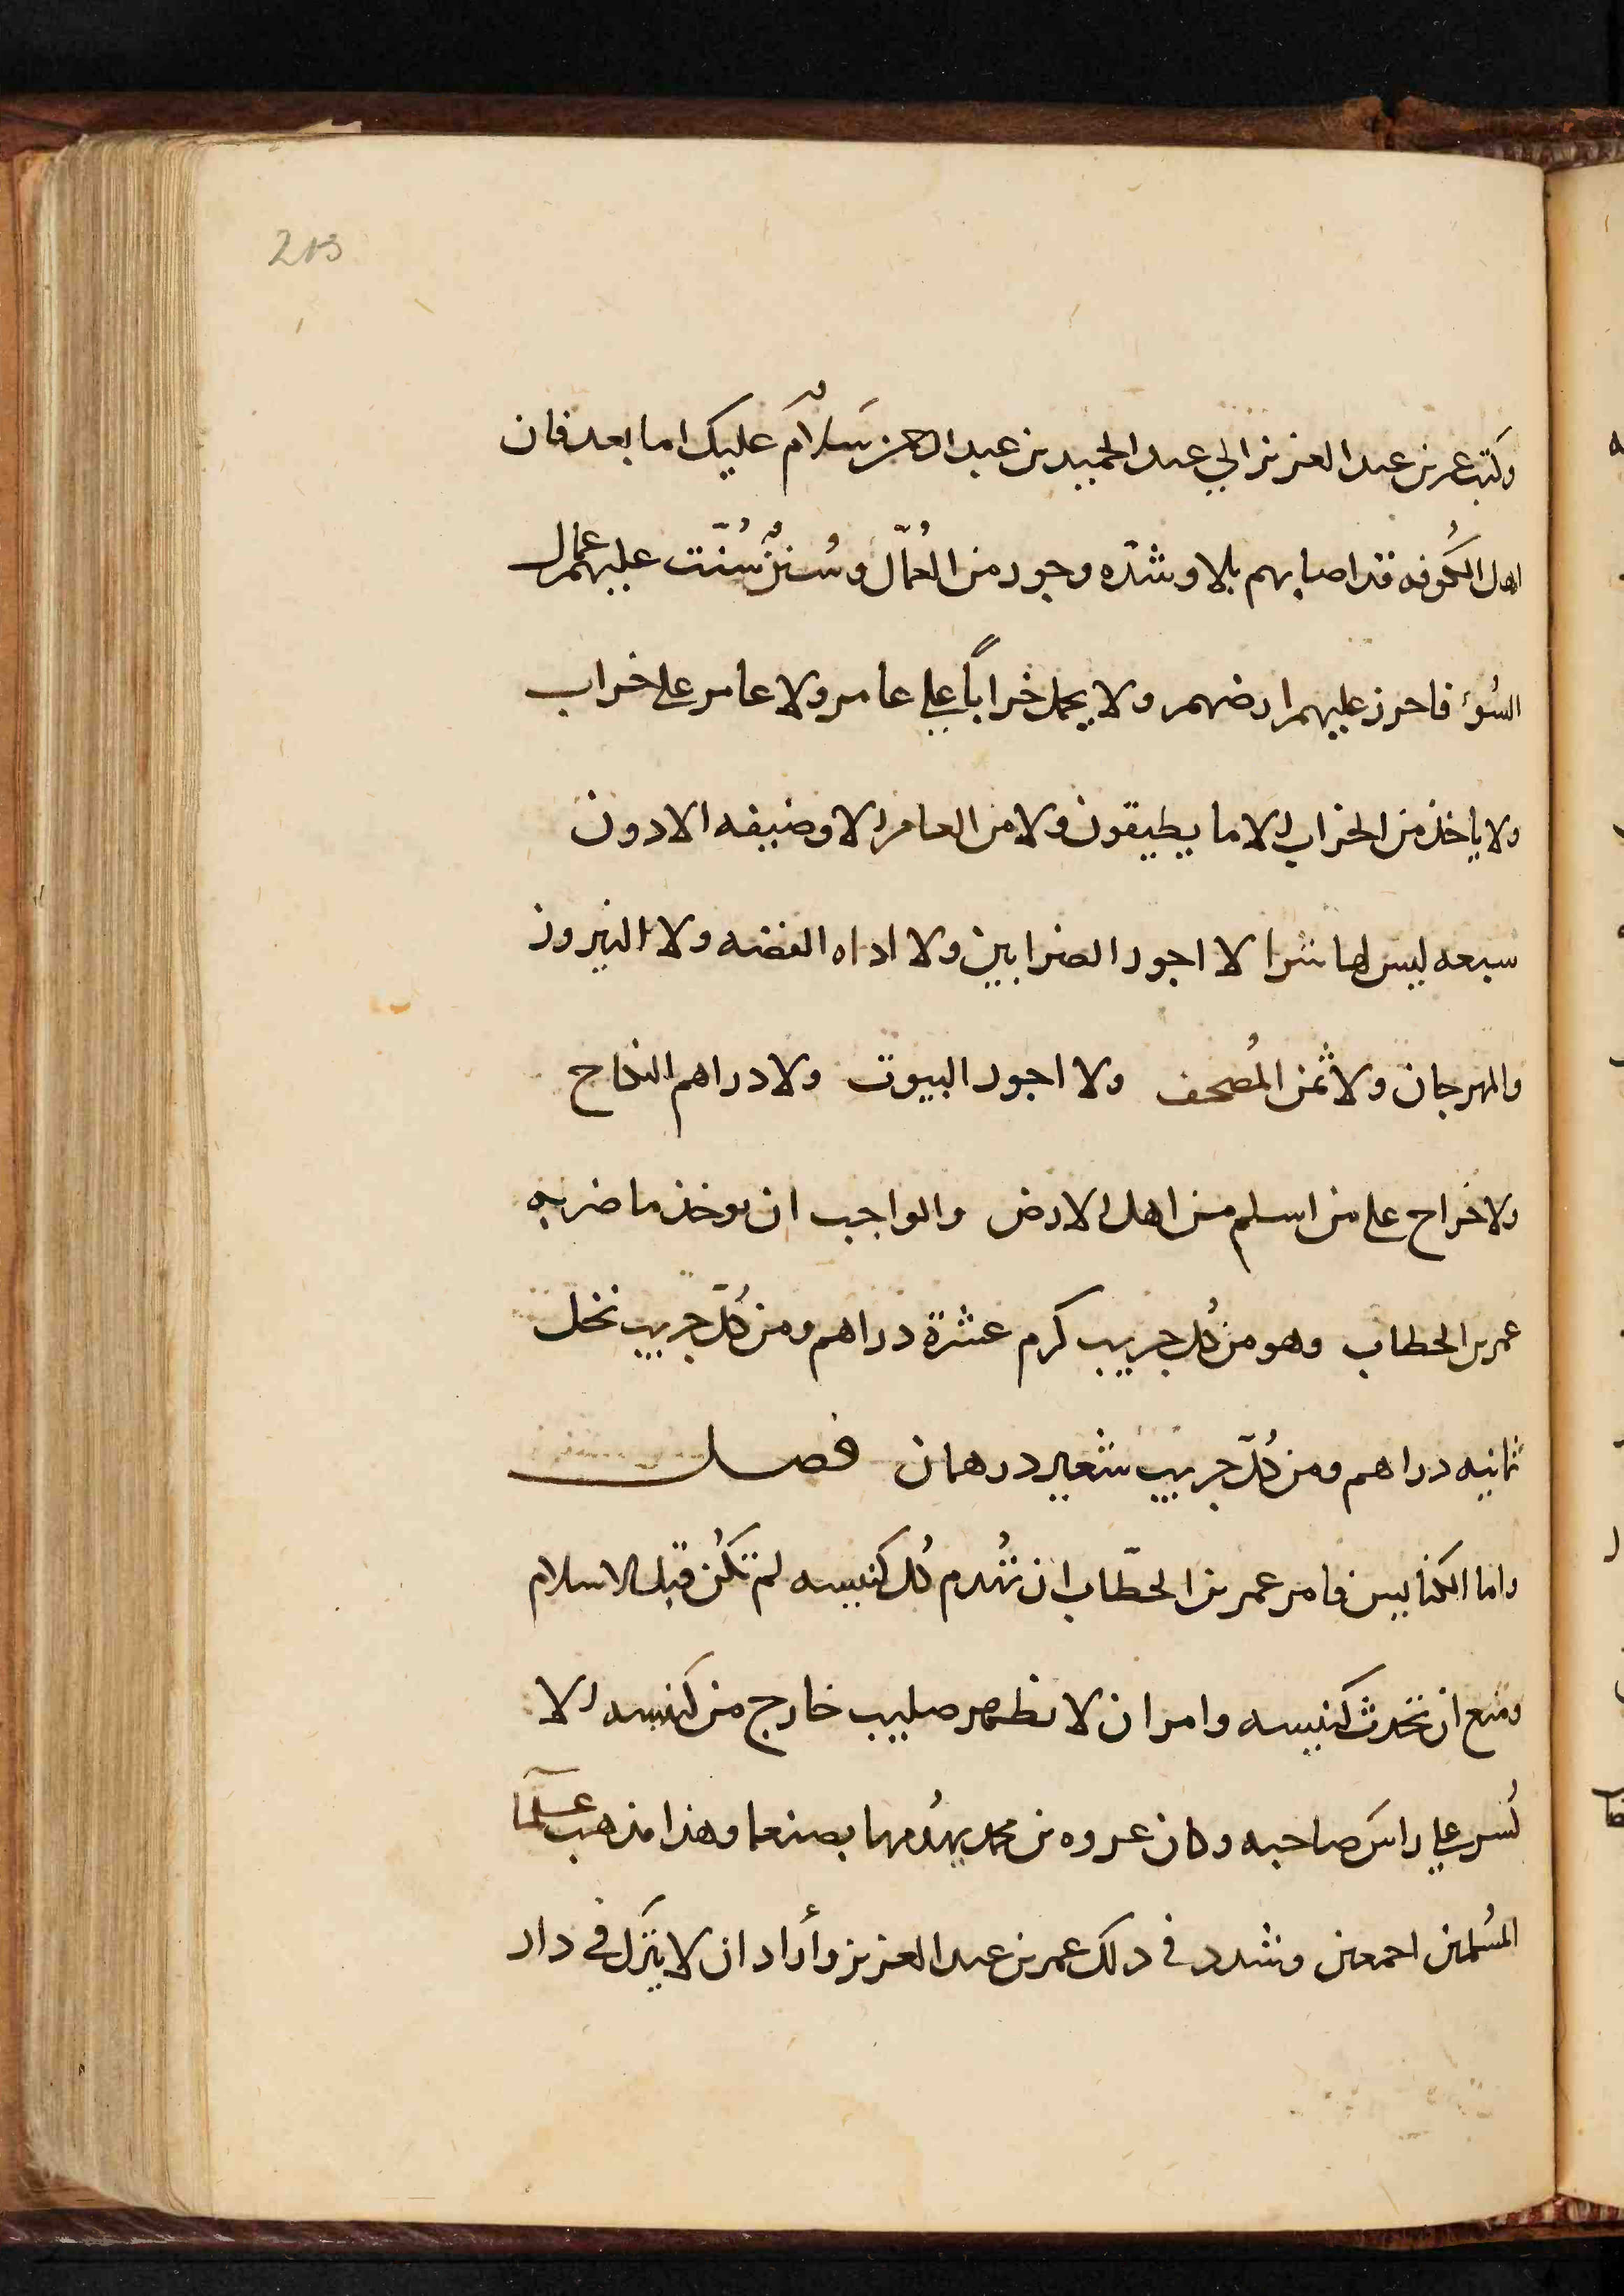 213
وكتب عمر بن عبد العزيز الي عبد الحميد بن عبد الرحمن سَلامٌ عليك اما بعد فان
اهل الكُوفه قد اصابهم بلا وشدّه وجور من العُمّال وسُننٌ سُنّت عليهم عمال
السُوء فاحرز عليهم ارضهم ولا يحمل خراباً علي عامر ولا عامر على خراب
ولا ياخذ من الخراب الا ما يطيقون ولا من العامر الا وضيفه الا دون
سبعه ليس لها شرا لا اجور الضرابين ولا اداه الفضه ولا النيروز
والمهرجان ولا ثمن المُصحف ولا اجور البيوت ولا دراهم النكاح
ولا خراج على من اسلم من اهل الارض والواجب ان يوخذ ما ضربه
عمر بن الخطاب وهو من كُل جريب كرم عشرة دراهم ومن كُلّ جريب نخل
ثمانيه دراهم ومن كُلّ جريب شعير درهمان فصل
واما الكنايس فامر عمر بن الخطّاب ان تُهدم كُل كنيسه لم تكُن قبل الاسلام
ومنع ان تحدث كنيسه وامر ان لا تظهر صليب خارج من كنيسه الا
كُسر علي راس صاحبه وكان عروه بن محمد يهدُمها بصنعا وهذا مذهب علمآ
المُسلمين اجمعين وشدد في ذلك عمر بن عبد العزيز وأراد ان لا يترَك في دار